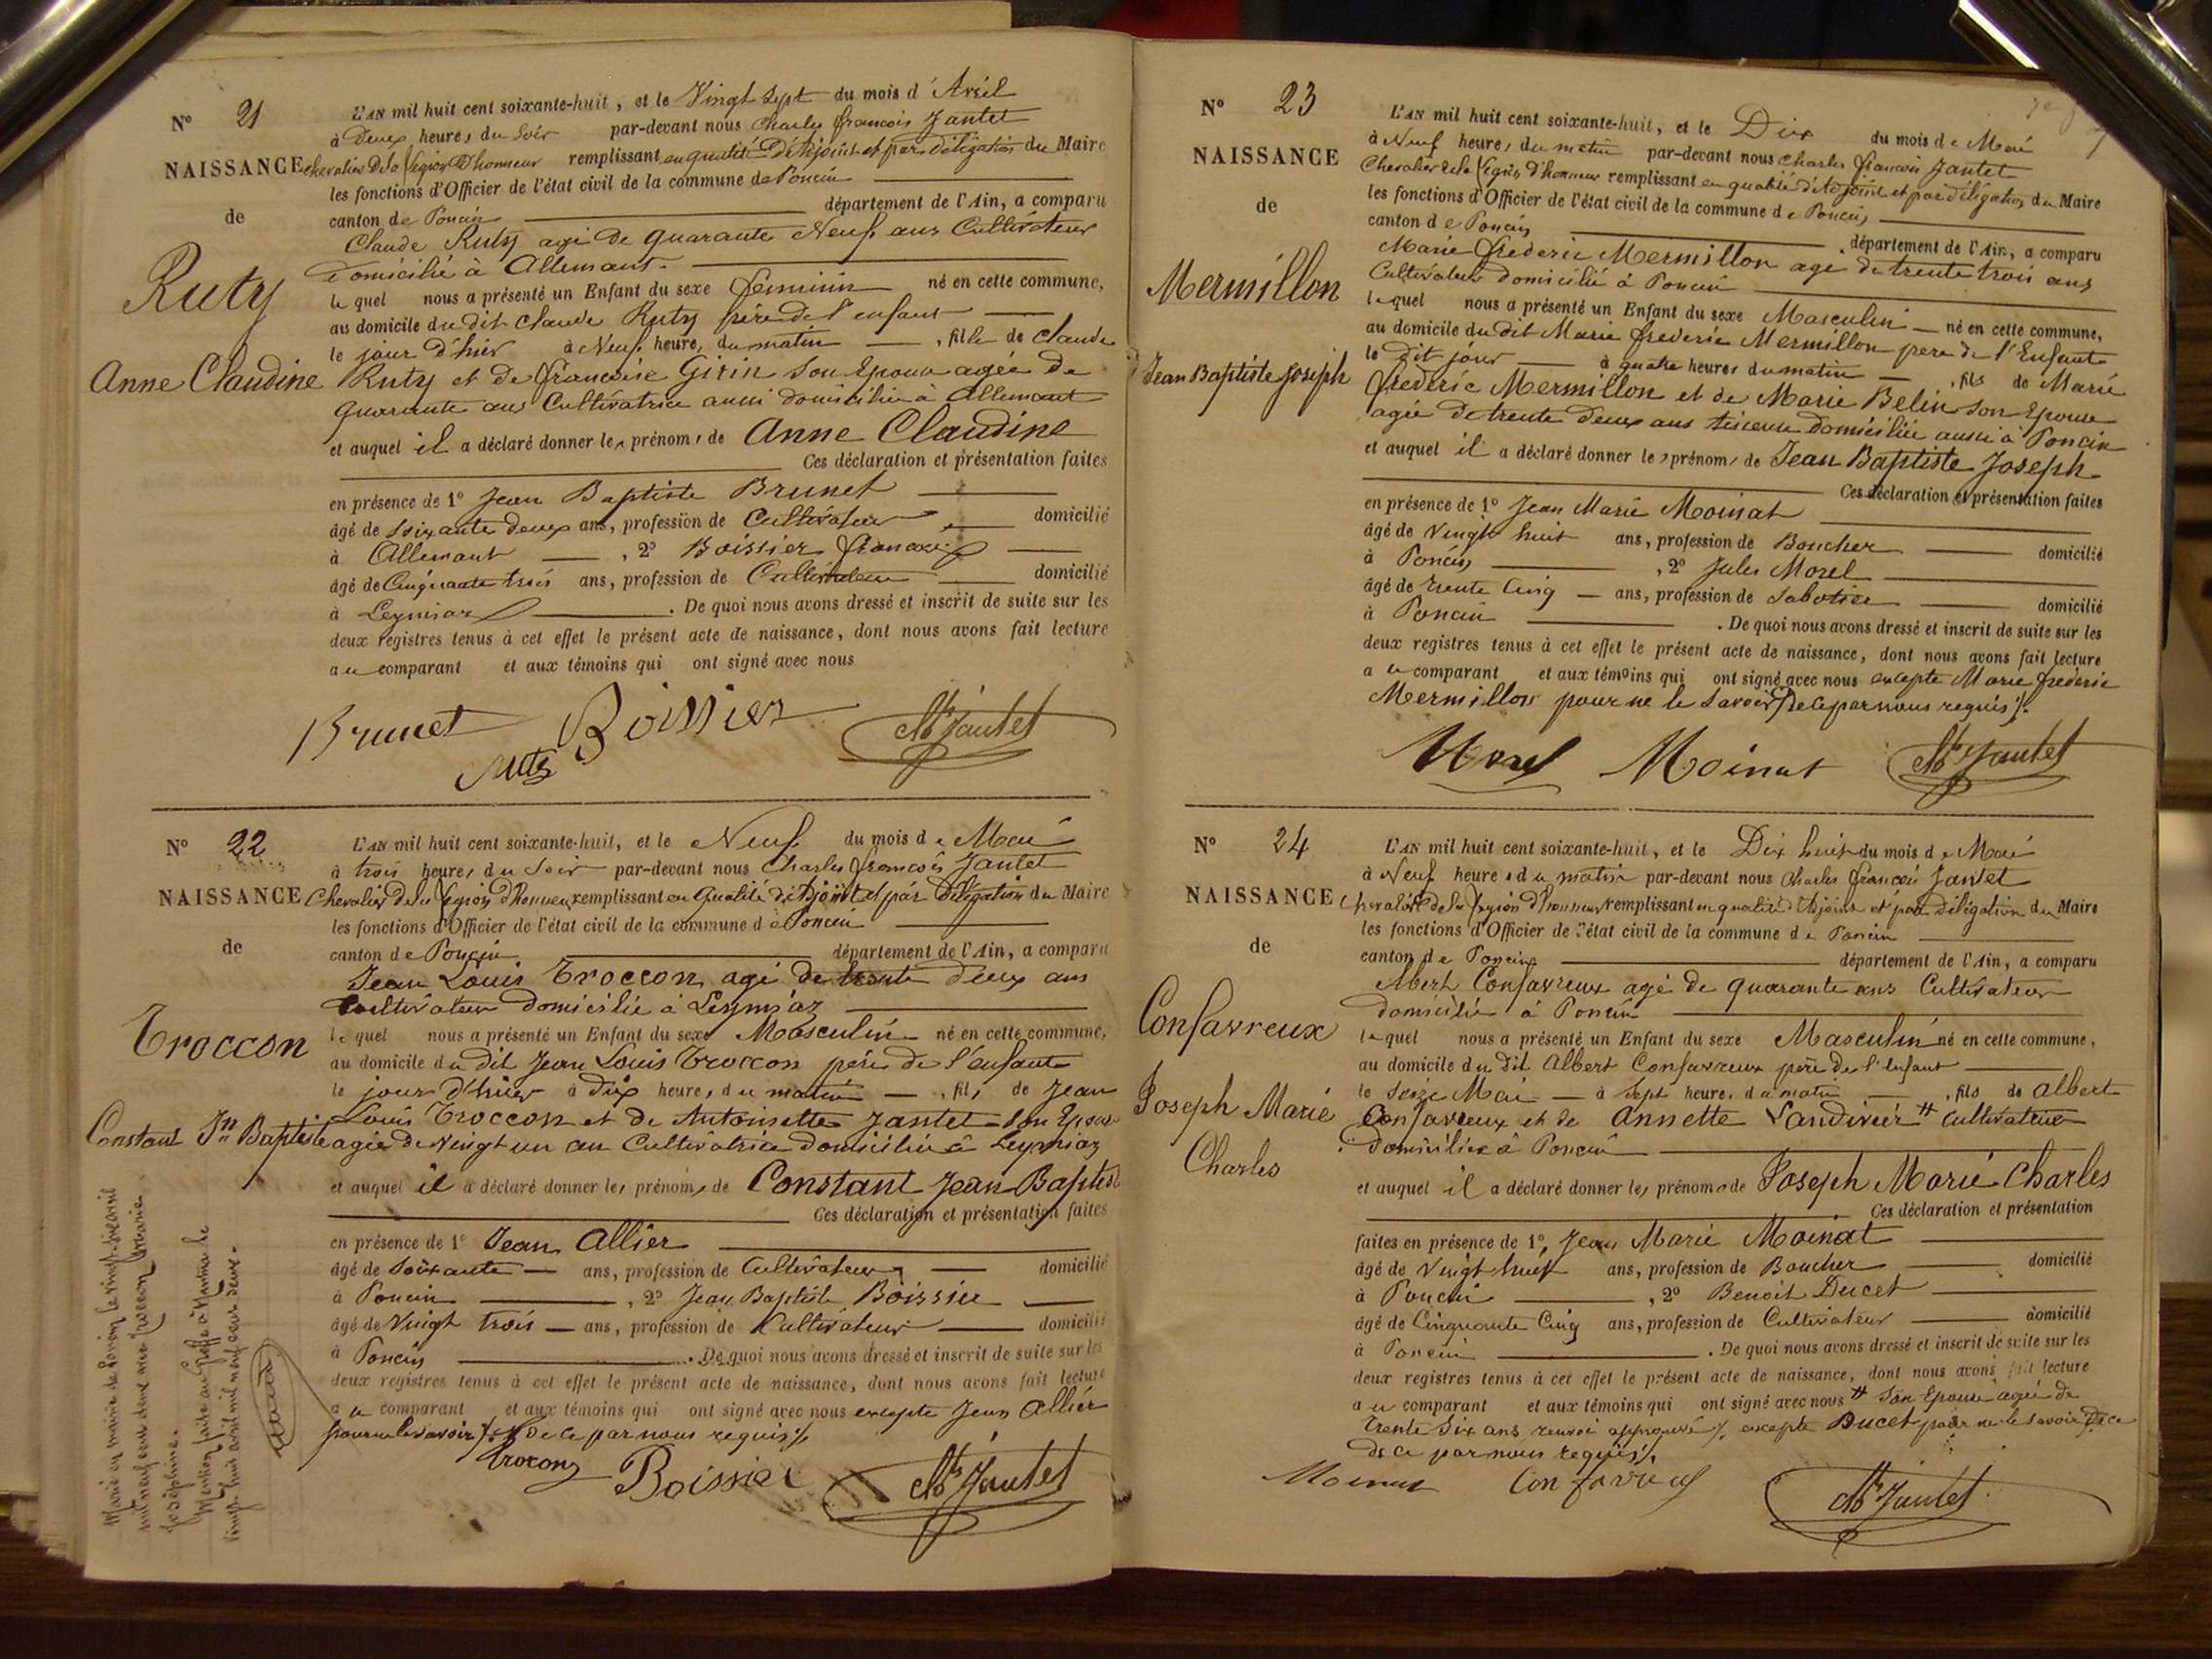 N° 21
NAISSANCE
de
Ruty
Anne Claudine
L'AN mil huit cent soixante-huit, et le Vingt Sept du mois d'Avril
à Deux heures du Soir par-devant nous Charles françois Jantet
chevalier de la Légion D'honneur remplissant en qualité D'Adjoint et par Délégation du Maire
les fonctions d'Officier de l'état civil de la commune de Poncin
canton de Poncin département de l'Ain, a comparu
Claude Ruty agé de quarante Neuf ans Cultivateur
domicilié à Allemant.
lequel nous a présenté un Enfant du sexe féminin né en cette commune,
au domicile du dit Claude Ruty père de l'enfant
le jour d'hier à Neuf heures du matin, fille de Claude
Ruty et de françoise Girin son Epouse agée de
quarante ans Cultivatrice aussi domiciliée à Allemant
et auquel il a déclaré donner les prénoms de Anne Claudine
Ces déclaration et présentation faites
en présence de 1° Jean Baptiste Brunet
âgé de soixante deux ans, profession de Cultivateur domicilié
à Allemant, 2° Boissier françois
âgé de Cinquante trois ans, profession de Cultivateur domicilié
à Leymiaz. De quoi nous avons dressé et inscrit de suite sur les
deux registres tenus à cet effet le présent acte de naissance, dont nous avons fait lecture
au comparant et aux témoins qui ont signé avec nous
Brunet Boissier Chs Jantet
Ruty
N° 22
NAISSANCE
de
Troccon
Constant Jn Baptiste
L'AN mil huit cent soixante-huit, et le Neuf du mois de Mai
à trois heures du Soir par-devant nous Charles françois Jantet
Chevalier de la Légion D'honneur remplissant en qualité D'Adjoint et par Délégation du Maire
les fonctions d'Officier de l'état civil de la commune de Poncin
canton de Poncin département de l'Ain, a comparu
Jean Louis Troccon agé de trente deux ans
Cultivateur domicilié à Leymiaz
lequel nous a présenté un Enfant du sexe Masculin né en cette commune,
au domicile du dit Jean Louis Troccon père de l'enfant
le jour d'hier à Dix heures du matin, fils de Jean
Louis Troccon et de Antoinette Jantet son Epouse
agée de Vingt un an Cultivatrice domiciliée à Leymiaz
et auquel il a déclaré donner les prénoms de Constant Jean Baptiste
Ces déclaration et présentation faites
en présence de 1° Jean Allier
âgé de Soixante ans, profession de Cultivateur domicilié
à Poncin, 2° Jean Baptiste Boissier
âgé de Vingt trois ans, profession de Cultivateur domicilié
à Poncin. De quoi nous avons dressé et inscrit de suite sur les
deux registres tenus à cet effet le présent acte de naissance, dont nous avons fait lecture
au comparant et aux témoins qui ont signé avec nous excepté Jean Allier
pour ne le savoir de ce par nous requis
Trocon Boissier Chs Jantet
Marié en mairie de Poncin le vingt-six avril
mil neuf cent deux avec Troccon Marie
Joséphine.
Mention faite au Greffe à Nantua le
vingt-huit avril mil neuf cent deux.
N° 23
NAISSANCE
de
Mermillon
Jean Baptiste Joseph
L'AN mil huit cent soixante-huit, et le Dix du mois de Mai
à Neuf heures du matin par-devant nous Charles françois Jantet
Chevalier de la Légion d'honneur remplissant en qualité d'Adjoint et par délégation du Maire
les fonctions d'Officier de l'état civil de la commune de Poncin
canton de Poncin département de l'Ain, a comparu
Marie frederic Mermillon agé de trente trois ans
Cultivateur domicilié à Poncin
lequel nous a présenté un Enfant du sexe Masculin né en cette commune,
au domicile du dit Marie frederic Mermillon père de l'Enfant
le dit jour à quatre heures du matin, fils de Marie
frederic Mermillon et de Marie Belin son Epouse
agée de trente deux ans tisseuse domiciliée aussi à Poncin
et auquel il a déclaré donner les prénoms de Jean Baptiste Joseph
Ces déclaration et présentation faites
en présence de 1° Jean Marie Moinat
âgé de Vingt huit ans, profession de Boucher domicilié
à Poncin, 2° Jules Morel
âgé de trente Cinq ans, profession de Sabotier domicilié
à Poncin. De quoi nous avons dressé et inscrit de suite sur les
deux registres tenus à cet effet le présent acte de naissance, dont nous avons fait lecture
au comparant et aux témoins qui ont signé avec nous excepté Marie frederic
Mermillon pour ne le savoir de ce par nous requis
Morel Moinat Chs Jantet
N° 24
NAISSANCE
de
Confavreux
Joseph Marie
Charles
L'AN mil huit cent soixante-huit, et le Dix huit du mois de Mai
à Neuf heures du matin par-devant nous Charles françois Jantet
Chevalier de la Légion D'honneur remplissant en qualité d'Adjoint et par délégation du Maire
les fonctions d'Officier de l'état civil de la commune de Poncin
canton de Poncin département de l'Ain, a comparu
Albert Confavreux agé de quarante ans Cultivateur
domicilié à Poncin
lequel nous a présenté un Enfant du sexe Masculin né en cette commune,
au domicile du dit Albert Confavreux père de l'enfant
le Seize Mai à sept heures du matin, fils de Albert
Confavreux et de Annette Vandirier # Cultivatrice
domiciliée à Poncin
et auquel il a déclaré donner les prénoms de Joseph Marie Charles
Ces déclaration et présentation
faites en présence de 1°, Jean Marie Moinat
âgé de Vingt huit ans, profession de Boucher domicilié
à Poncin, 2° Benoit Ducet
âgé de Cinquante Cinq ans, profession de Cultivateur domicilié
à Poncin. De quoi nous avons dressé et inscrit de suite sur les
deux registres tenus à cet effet le présent acte de naissance, dont nous avons fait lecture
au comparant et aux témoins qui ont signé avec nous # Son Epouse agée de
trente Six ans renvoi approuvé excepté Ducet pour ne le savoir de ce
de ce par nous requis
Moinat Confavreux Chs Jantet